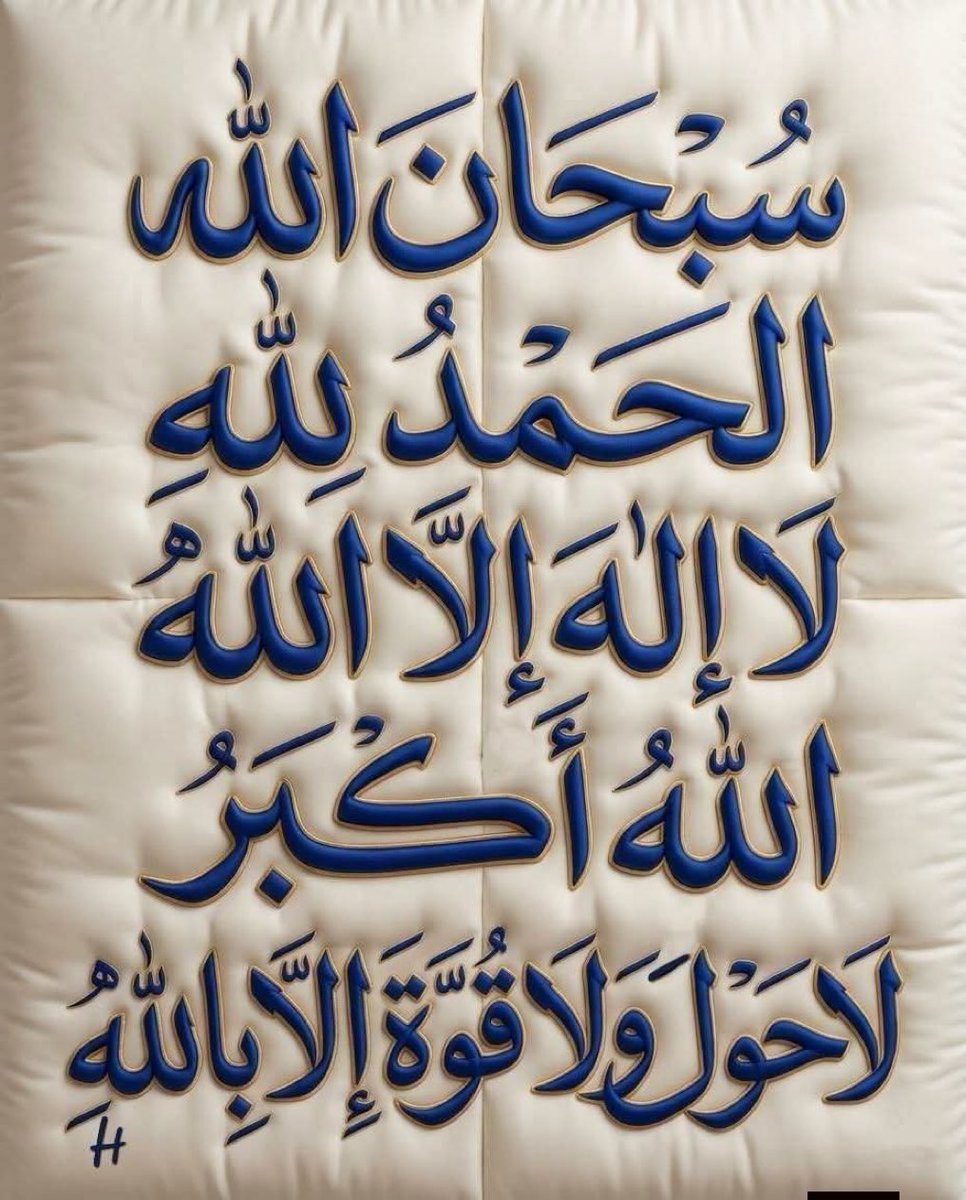 سُبْحَانَ اللّٰه
الحَمْدُ لِلّٰهِ
لَا إِلٰهَ إِلَّا اللّٰهُ
اللّٰهُ أَكْبَرُ
لَا حَوْلَ وَلَا قُوَّةَ إِلَّا بِاللّٰهِ
H